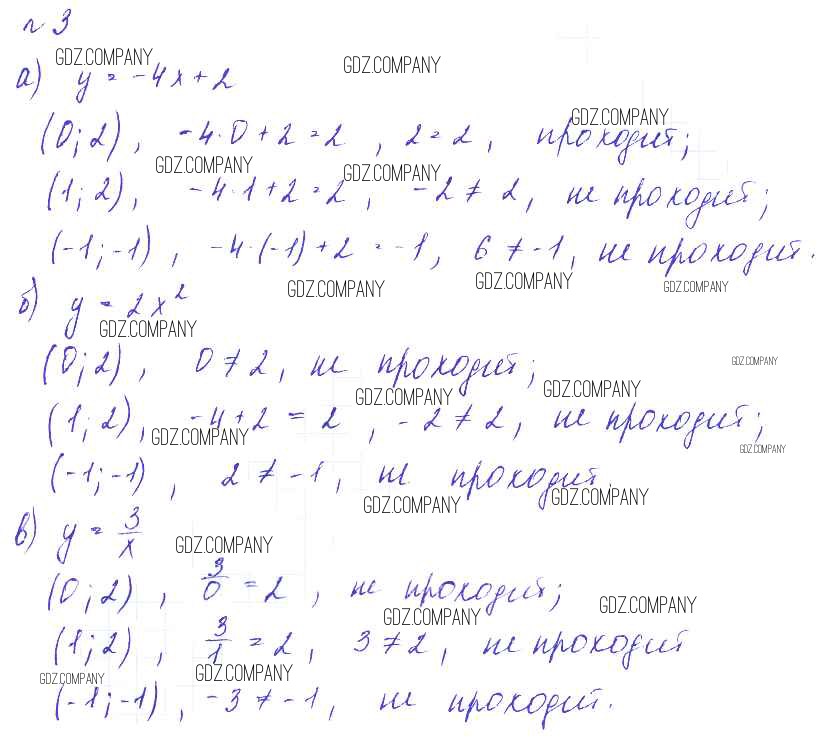 № 3
GDZ.COMPANY GDZ.COMPANY
а) y = -4x + 2
GDZ.COMPANY
(0; 2), -4·0 + 2 = 2, 2 = 2, проходит;
GDZ.COMPANY GDZ.COMPANY
(1; 2), -4·1 + 2 = 2, -2 ≠ 2, не проходит;
(-1; -1), -4·(-1) + 2 = -1, 6 ≠ -1, не проходит.
GDZ.COMPANY GDZ.COMPANY GDZ.COMPANY
б) y = 2x²
GDZ.COMPANY
(0; 2), 0 ≠ 2, не проходит;
GDZ.COMPANY
GDZ.COMPANY GDZ.COMPANY
(1; 2), -4 + 2 = 2, -2 ≠ 2, не проходит;
GDZ.COMPANY GDZ.COMPANY
(-1; -1), 2 ≠ -1, не проходит.
GDZ.COMPANY GDZ.COMPANY
в) y = 3/x
GDZ.COMPANY
(0; 2), 3/0 = 2, не проходит;
GDZ.COMPANY GDZ.COMPANY
(1; 2), 3/1 = 2, 3 ≠ 2, не проходит
GDZ.COMPANY GDZ.COMPANY
(-1; -1), -3 ≠ -1, не проходит.